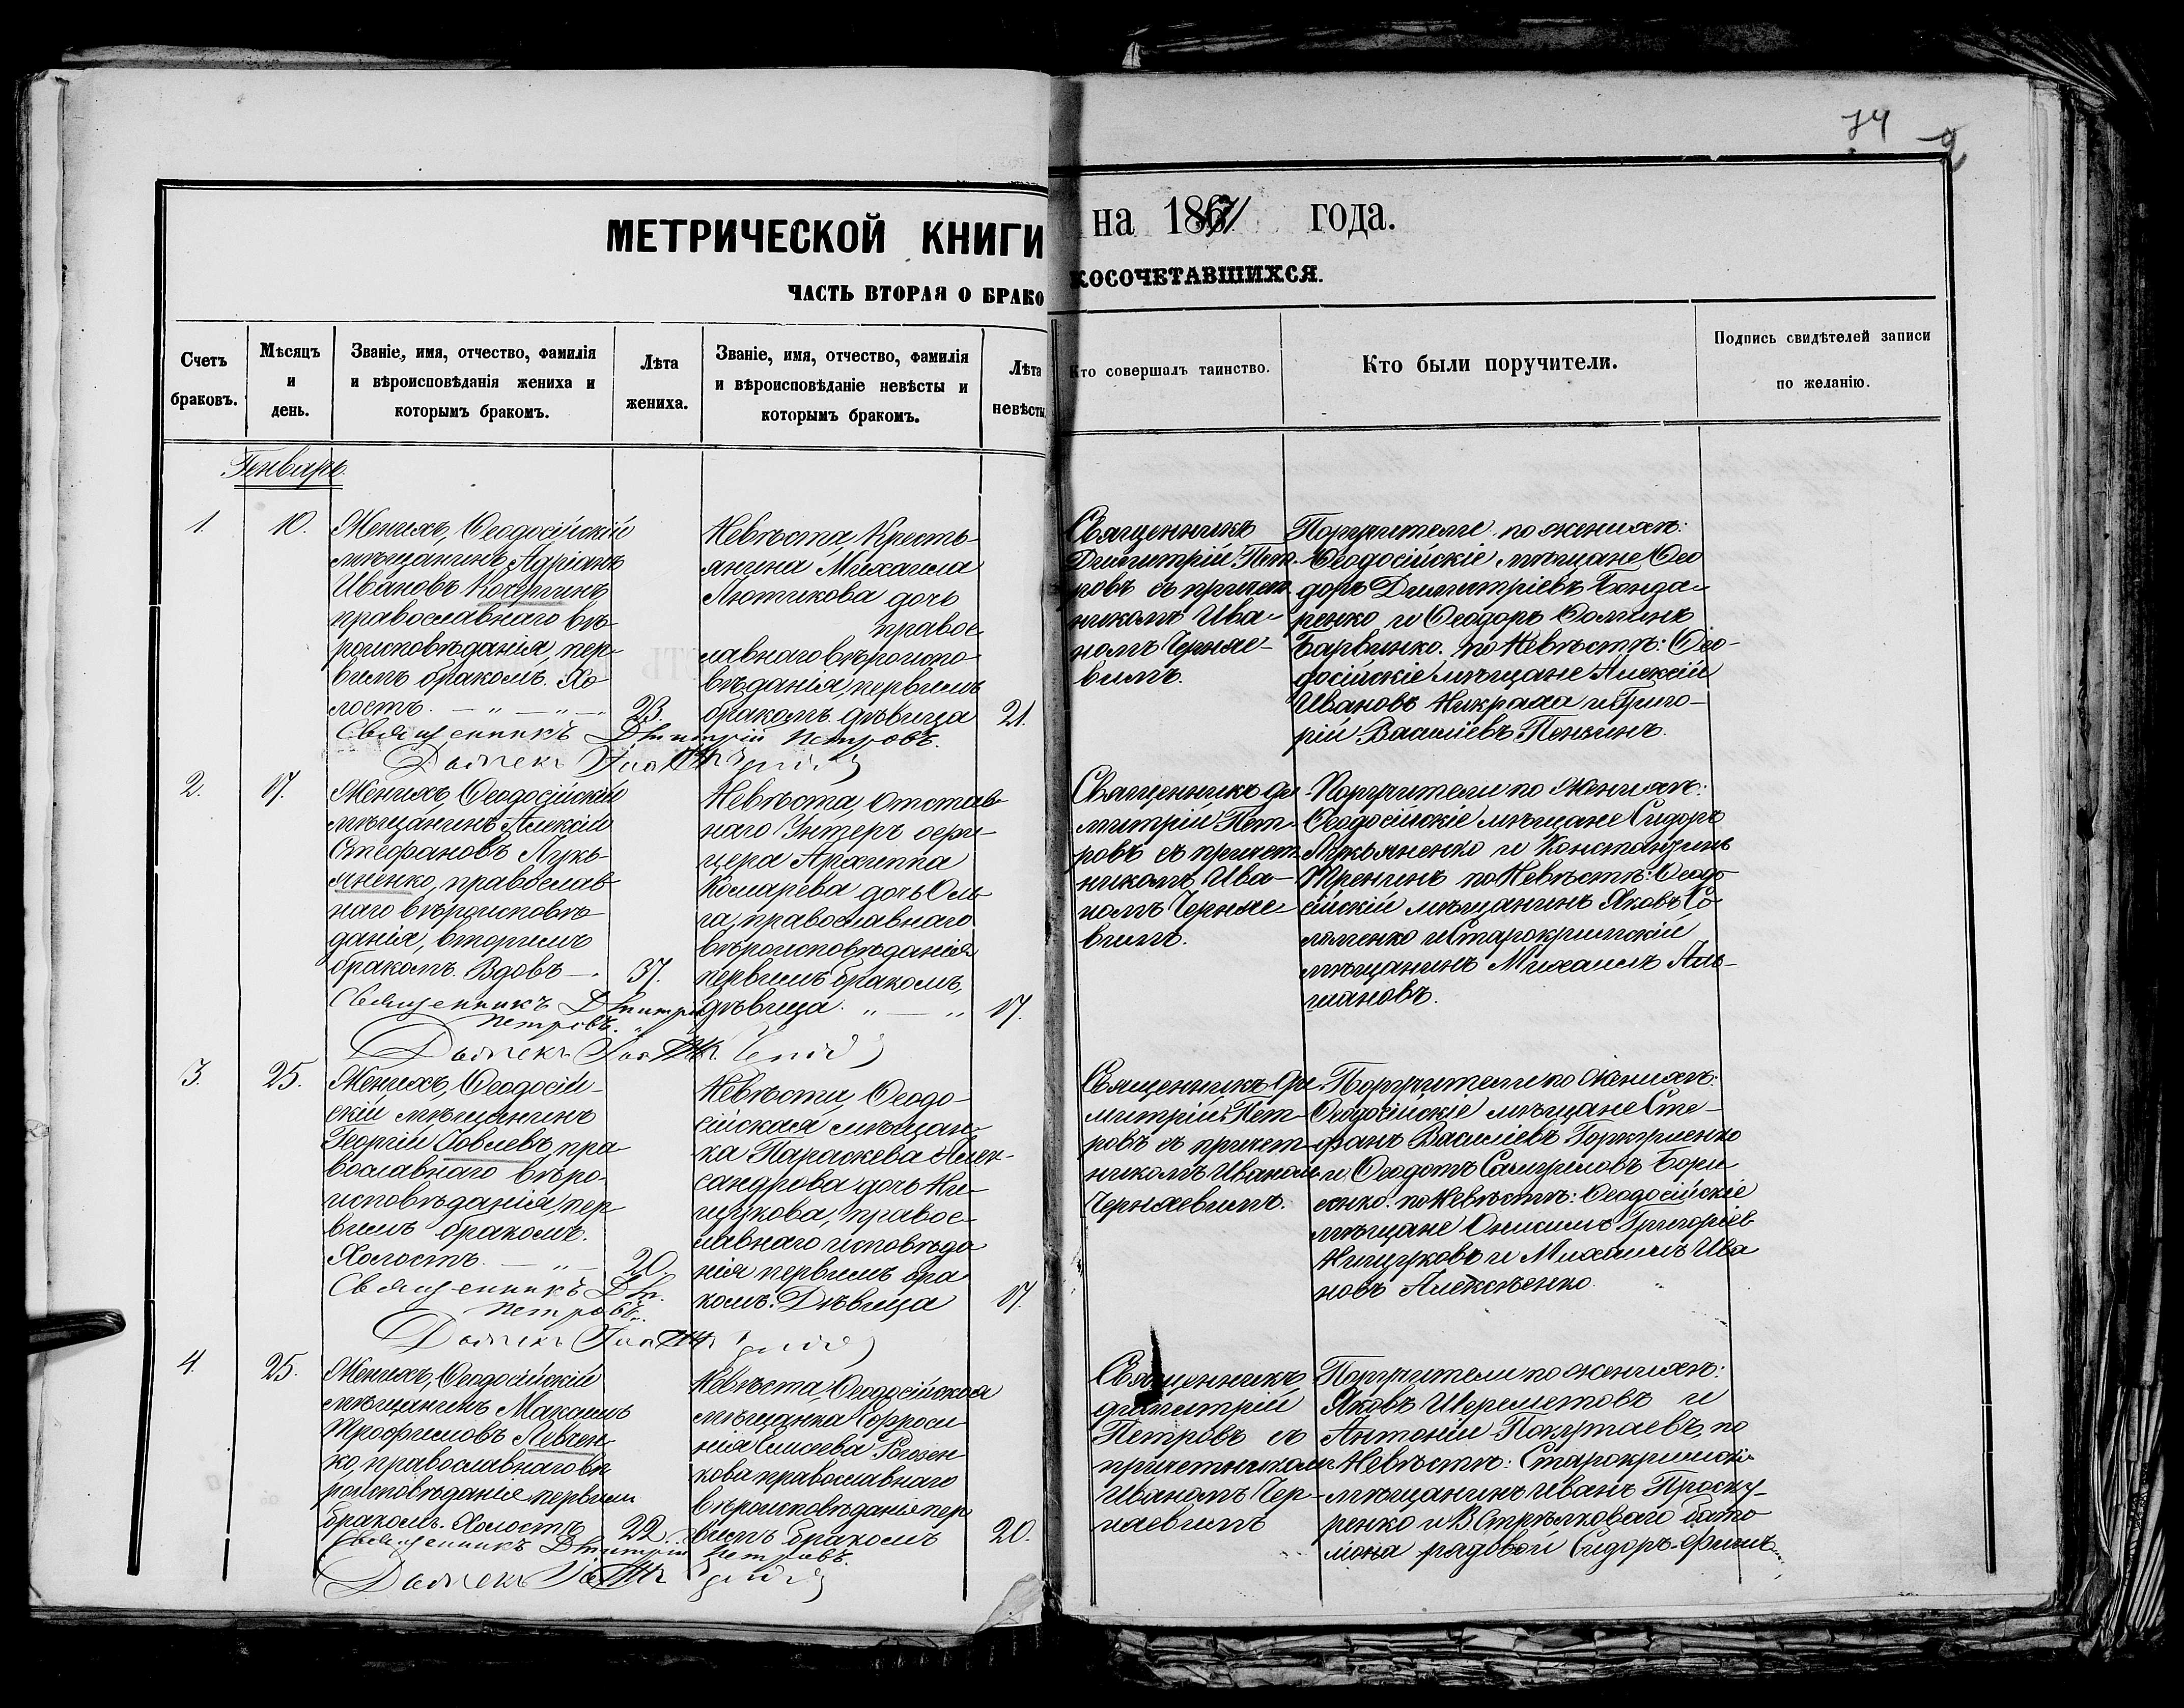 74
МЕТРИЧЕСКОЙ КНИГИ на 1871 года.
ЧАСТЬ ВТОРАЯ О БРАКОКОСОЧЕТАВШИХСЯ.
Счетъ браковъ.
Мѣсяцъ и день.
Званіе, имя, отчество, фамилія и вѣроисповѣданія жениха и которымъ бракомъ.
Лѣта жениха.
Званіе, имя, отчество, фамилія и вѣроисповѣданіе невѣсты и которымъ бракомъ.
Лѣта невѣсты.
Кто совершалъ таинство.
Кто были поручители.
Подпись свидѣтелей записи по желанію.
Генварь
1.
10.
Женихъ, Ѳеодосійскій
мѣщанинъ Адріанъ
Ивановъ Кочергинъ
православнаго вѣ-
роисповѣданія, пер-
вымъ бракомъ. Хо-
лостъ.
23.
Невѣста, Кресть-
янина Михаила
Лютикова дочь
правос-
лавнаго вѣроиспо-
вѣданія, первымъ
бракомъ. дѣвица
21.
Священникъ
Димитрій Пет-
ровъ съ причет-
никомъ Ива-
номъ Черняе-
вымъ.
Поручители по женихѣ:
Ѳеодосійскіе мѣщане, Ѳео
доръ Димитріевъ Бонда-
ренко и Ѳеодоръ Ѳоминъ
Барвинко. по Невѣстѣ: Ѳео-
досійскіе мѣщане Алексій
Ивановъ Никраха и Григо-
рій Василіевъ Пензинъ.
Священникъ Дмитрій Петровъ.
2.
17.
Женихъ, Ѳеодосійскій
мѣщанинъ Алексій
Стефановъ Лукь-
яненко, православ-
наго вѣроисповѣ-
данія, вторымъ
бракомъ. Вдовъ
37.
Невѣста, Отстав-
наго Унтеръ офи-
цера Архиппа
Комарева дочь Оль-
га, православнаго
вѣроисповѣданія
первымъ бракомъ,
дѣвица.
17.
Священникъ Ди-
митрій Пет-
ровъ съ причет-
никомъ Ива-
номъ Черняе-
вымъ.
Поручители по Женихѣ:
Ѳеодосійскіе мѣщане Сидоръ
Лукьяненко и Константинъ
Тренинъ по Невѣстѣ: Ѳеодо-
сійскій мѣщанинъ Яковъ Со-
ломенко и Старокрымскій
мѣщанинъ Михаилъ
Священникъ Дмитрій
Петровъ.
3.
25.
Женихъ, Ѳеодосій-
скій мѣщанинъ
Георгій Іовлевъ, пра
вославнаго вѣро-
исповѣданія, пер-
вымъ бракомъ.
Холостъ.
20.
Невѣста, Ѳеодо-
сійская мѣщан-
ка Параскева Алек-
сандрова дочь Ни-
щукова, правос-
лавнаго исповѣда
нія первымъ бра
комъ. Дѣвица
17.
Священникъ Ди-
митрій Пет-
ровъ съ причет-
никомъ Иваномъ
Черняевымъ.
Поручители по Женихѣ:
Ѳеодосійскіе мѣщане Сте-
фанъ Василіевъ
и Ѳеодотъ Самуиловъ Бори
сенко. по Невѣстѣ: Ѳеодосійскіе
мѣщане Онисимъ Григоріев
Нищуковъ и Михаилъ Ива
новъ Алексѣенко.
Священникъ Дм.
Петровъ.
4.
25.
Женихъ, Ѳеодосійскій
мѣщанинъ Максимъ
Трофимовъ Левчен-
ко, православнаго вѣ
роисповѣданія первым
бракомъ. Холостъ
22.
Невѣста, Ѳеодосійская
мѣщанка Ефроси
нія Елисева
кова православнаго
вѣроисповѣданія пер
вымъ бракомъ
20.
Священникъ
Димитрій
Петровъ съ
причетникомъ
Иваномъ Чер-
няевымъ
Поручители по женихѣ:
Яковъ Шереметовъ и
Антоній Покутаевъ, по
Невѣстѣ: Старокрымскій
мѣщанинъ Иванъ Проску-
ренко и В Стрѣлковаго бата
лiона рядовой Сидоръ
Священникъ Дмитрій Петровъ.